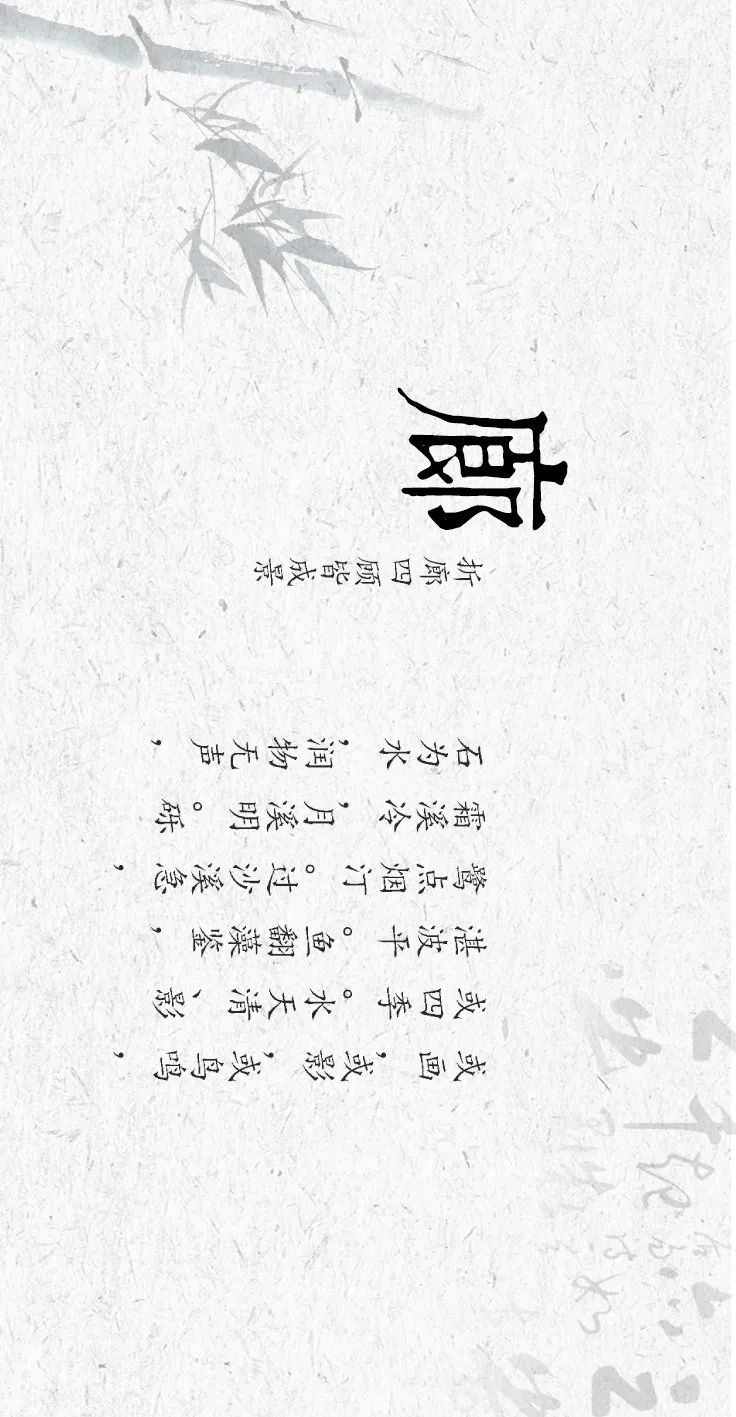 廊
折廊四顾皆成景
或画，或影，或鸟鸣，
或四季。水天清、影
湛波平。鱼翻藻鉴，
鹭点烟汀。过沙溪急，
霜溪冷，月溪明。砾
石为水，润物无声，